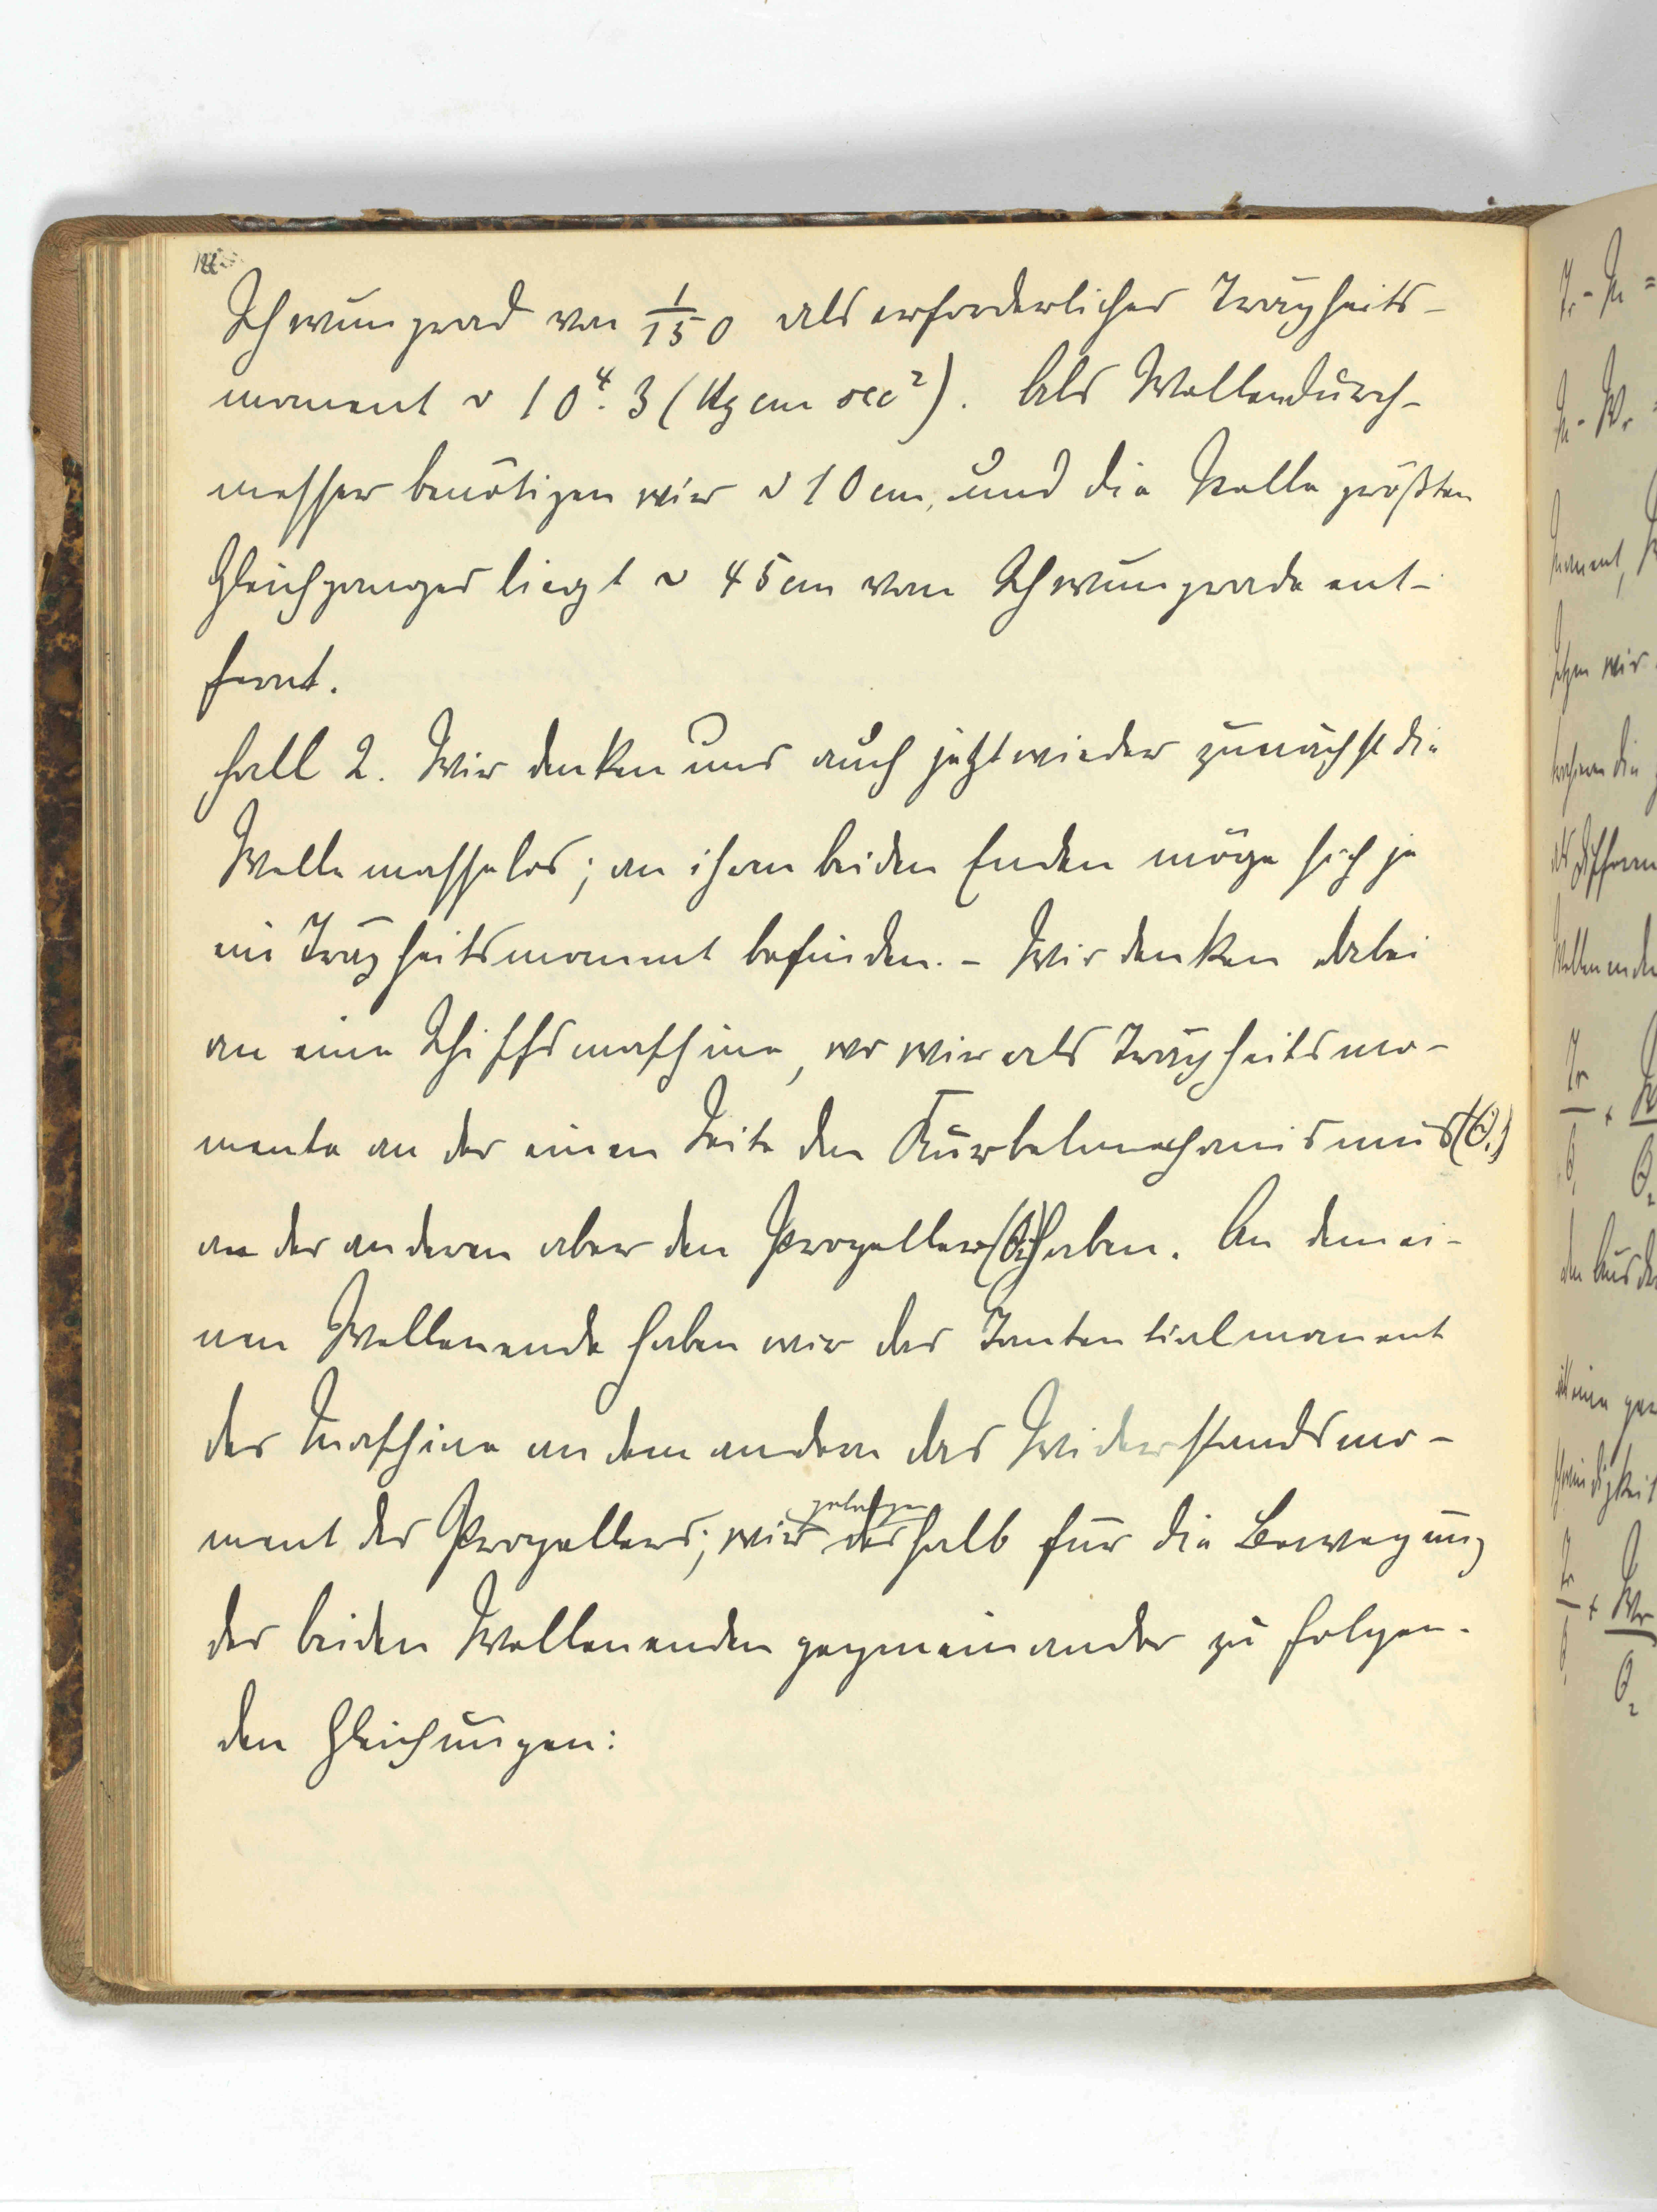 Schwungrad von 1/150 als erforderliches Trägheits-
moment ~ 10⁴·3 (Kg cm sec²). Als Wellendurch-
messer benötigen wir ~ 10 cm, und die Stelle größten
Gleichganges liegt ~ 45 cm vom Schwungrade ent-
fernt.
Fall 2. Wir denken uns auch jetzt wieder zunächst die
Welle masselos; an ihren beiden Enden möge sich je
ein Trägheitsmoment befinden. – Wir denken dabei
an eine Schiffsmaschine, wo wir als Trägheitsmo-
mente an der einen Seite den Kurbelmechanismus (Θ₁)
an der anderen aber den Propeller (Θ₂) haben. An dem ei-
nen Wellenende haben wir das Tantentialmoment
der Maschine an dem andern das Widerstandsmo-
ment des Propellers; wir gelangen deshalb für die Bewegung
der beiden Wellenenden gegeneinander zu folgen-
den Gleichungen:
Tr - M =
M - Wr =
moment,
setzen wir
als Differen
Wellenende
Tr/Θ₁ + W
Θ₂
ist eine
schwindigkeit
Tr/Θ₁ + Wr/Θ₂